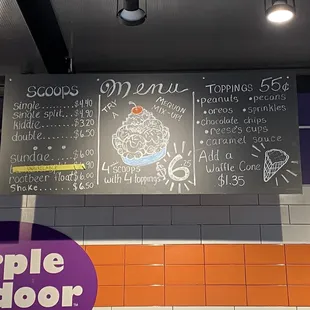 SCOOPS
Single.......$4.40
Single split...$4.90
kiddie.......$3.20
double.......$6.50
sundae.......$6.00
.90
rootbeer float $6.00
Shake.......$6.50
Menu
TRY A
MEQUON MIX-UP!
4 scoops with 4 toppings
$6.25
TOPPINGS 55¢
• peanuts • pecans
• oreos • sprinkles
• chocolate chips
• reese's cups
• caramel sauce
Add a
Waffle Cone
$1.35
rple
door™